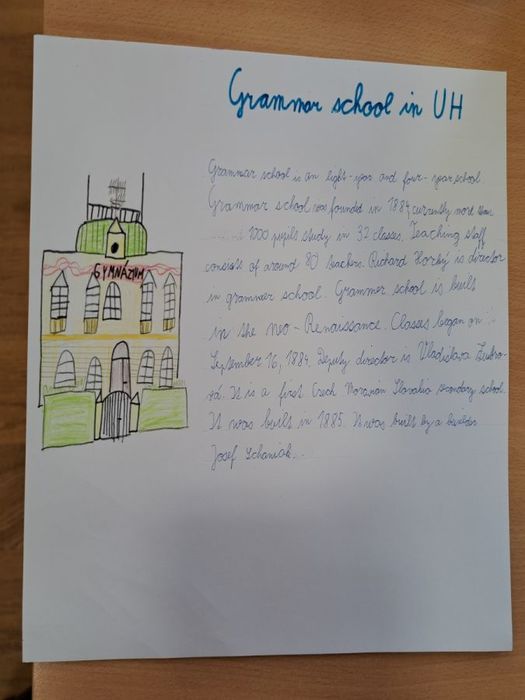 Grammar school in UH
Grammar school is an eight-year and four-year school.
Grammar school was founded in 1884, currently more than
1000 pupils study in 32 classes. Teaching staff
consists of around 80 teachers. Richard is director
in grammer school. Grammer school is built
in the neo-Renaissance. Classes began on
September 16, 1884. Deputy director is Vladislava
It is a first Czech Moravian Slovakia secondary school.
It was built in 1885. It was built by a builder
Josef Schaniak.
GYMNÁZIUM